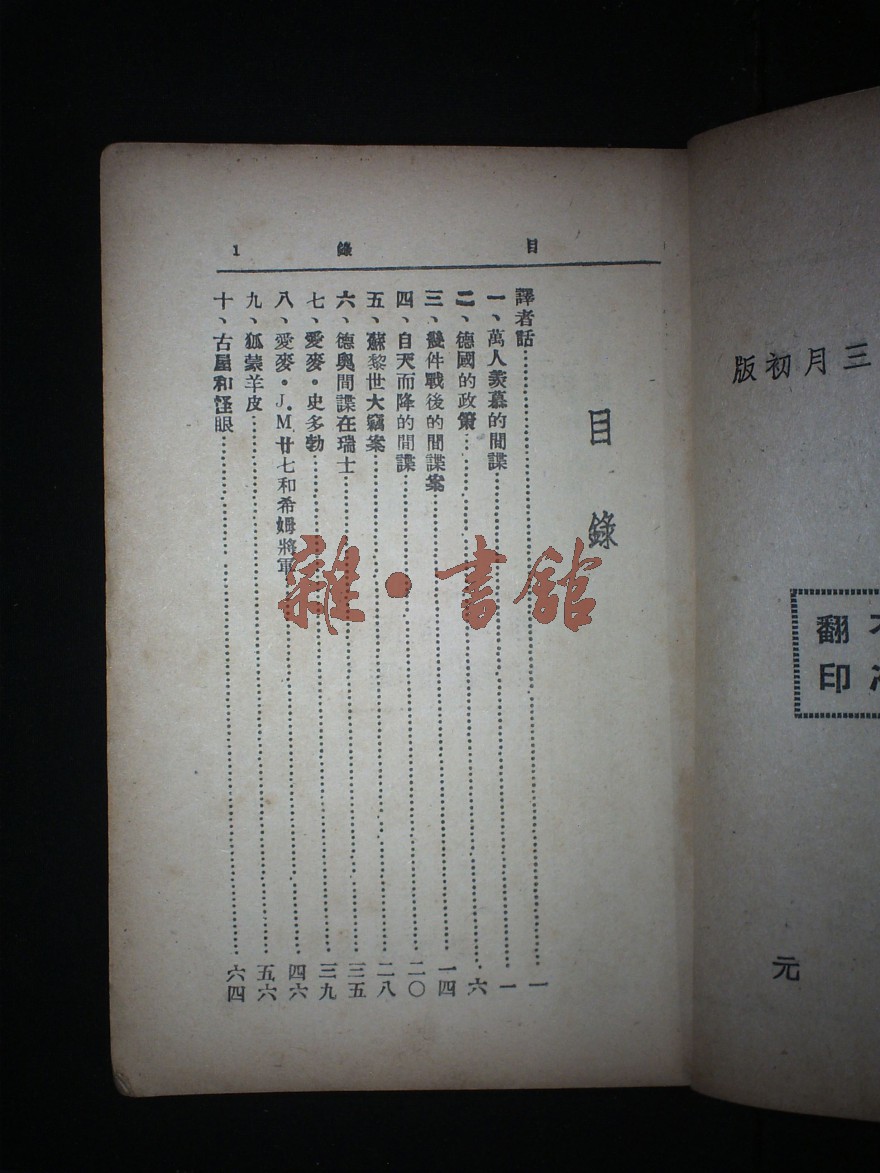 三月初版
不
翻
印
元
目錄 1
目錄
譯者話……一
一、萬人羨慕的間諜……一
二、德國的政策……六
三、幾件戰後的間諜案……一四
四、自天而降的間諜……二〇
五、蘇黎世大竊案……二八
六、德奧間諜在瑞士……三五
七、愛麥·史多勃……三九
八、愛麥·J.M廿七和希姆將軍……四六
九、狐蒙羊皮……五六
十、古屋和怪眼……六四
雜·書館